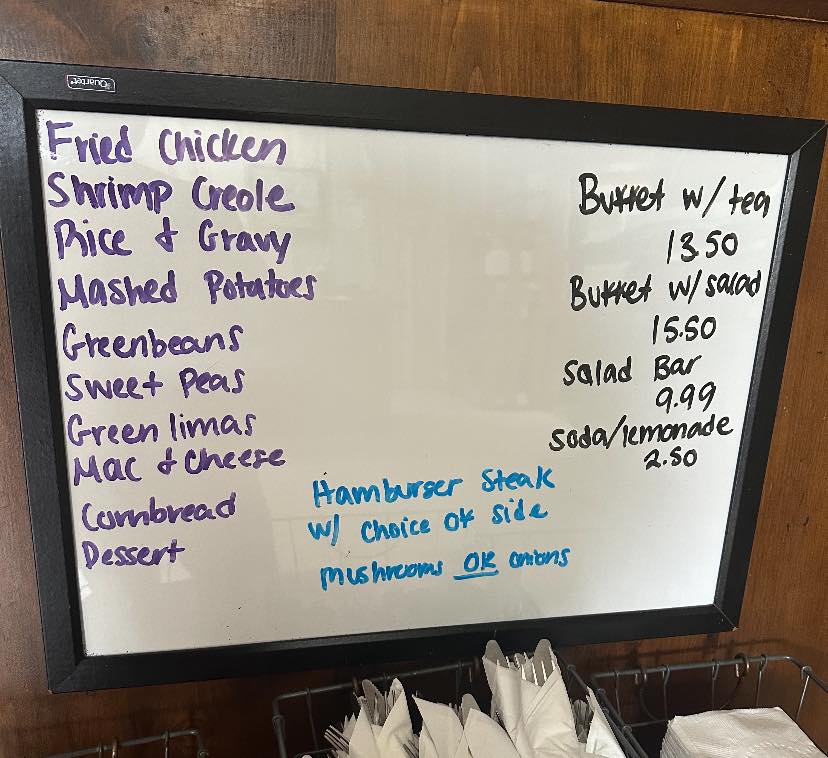 Quartet
Fried Chicken
Shrimp Creole
Rice & Gravy
Mashed Potatoes
Greenbeans
Sweet Peas
Green limas
Mac & Cheese
Cornbread
Dessert
Hamburger Steak
w/ choice of side
mushrooms OR onions
Buffet w/ tea
13.50
Buffet w/ salad
15.50
Salad Bar
9.99
soda/lemonade
2.50